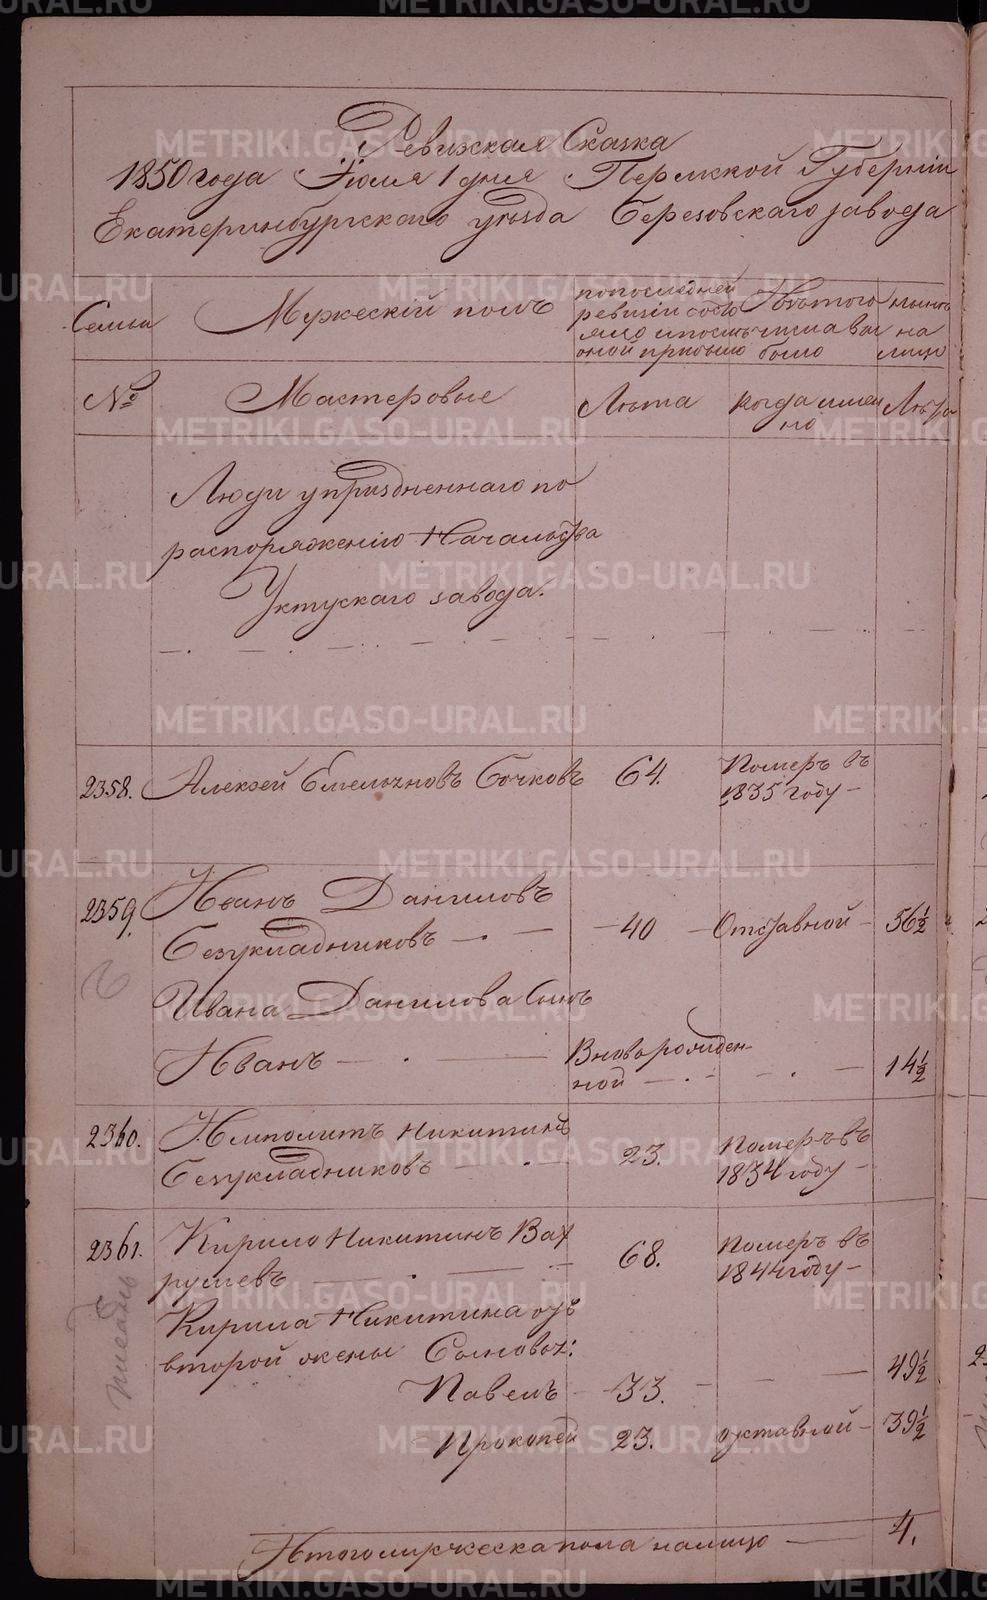 Ревижская Сказка
1850 года Іюля 1 дня Пермской Губерніи
Екатеринбургскаго уѣзда Березовскаго завода
Семьи
Мужескій полъ
по последней
ревизіи состо
яло и послѣ
оной прибыло
Изъ того
числа вы
было
нынѣ
на
лицо
№
Мастеровые
Лѣта
когда имен
но
Лѣта
Люди упраздненнаго по
распоряженію Начальства
Уктускаго завода.
2358.
Алексей Емельяновъ Бочковъ
64.
Померъ въ
1835 году
2359.
Иванъ Даниловъ
Безукладниковъ
40
Отставной
56½
Ивана Данилова Сынъ
Иванъ
Вновьрожден-
ной
14½
2360.
Ипполитъ Никитинъ
Безукладниковъ
23.
Померъ въ
1834 году
2361.
Кирило Никитинъ Вах
рушевъ
68.
Померъ въ
1844 году
Кирила Никитина отъ
второй жены Сыновья:
Павелъ
33.
49½
Прокопей
23.
отставной
39½
Итого мужеска пола налицо
4.
METRIKI.GASO-URAL.RU